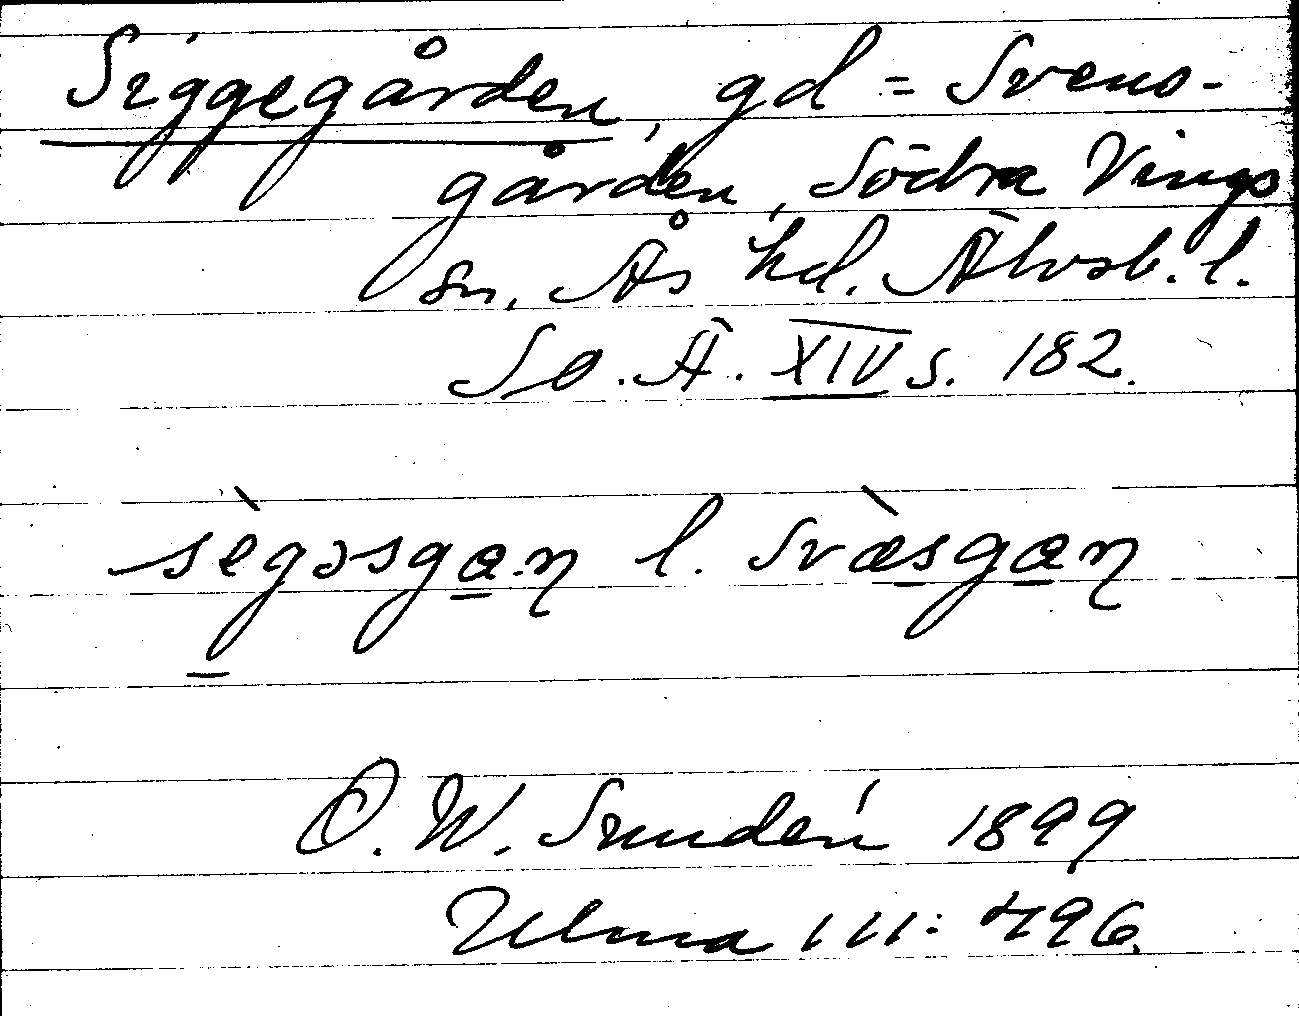 Siggegården, gd = Svens-
gården, Södra Vings
sn. Ås hd. Älvsb. l.
SO. Ä. XIV s. 182.
sègəsgan l. svæ̀sgan
O. W. Sundén 1899
Ulma 111: 496.